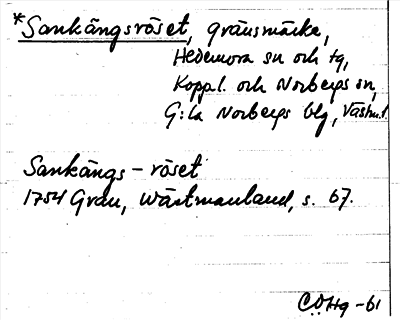 *Sankängsröset, gränsmärke,
Hedemora sn och tg,
Koppl. och Norbergs sn,
G:la Norbergs blg, Västml.
Sankängs-röset
1754 Grau, Wästmanland, s. 67.
CÖHg -61